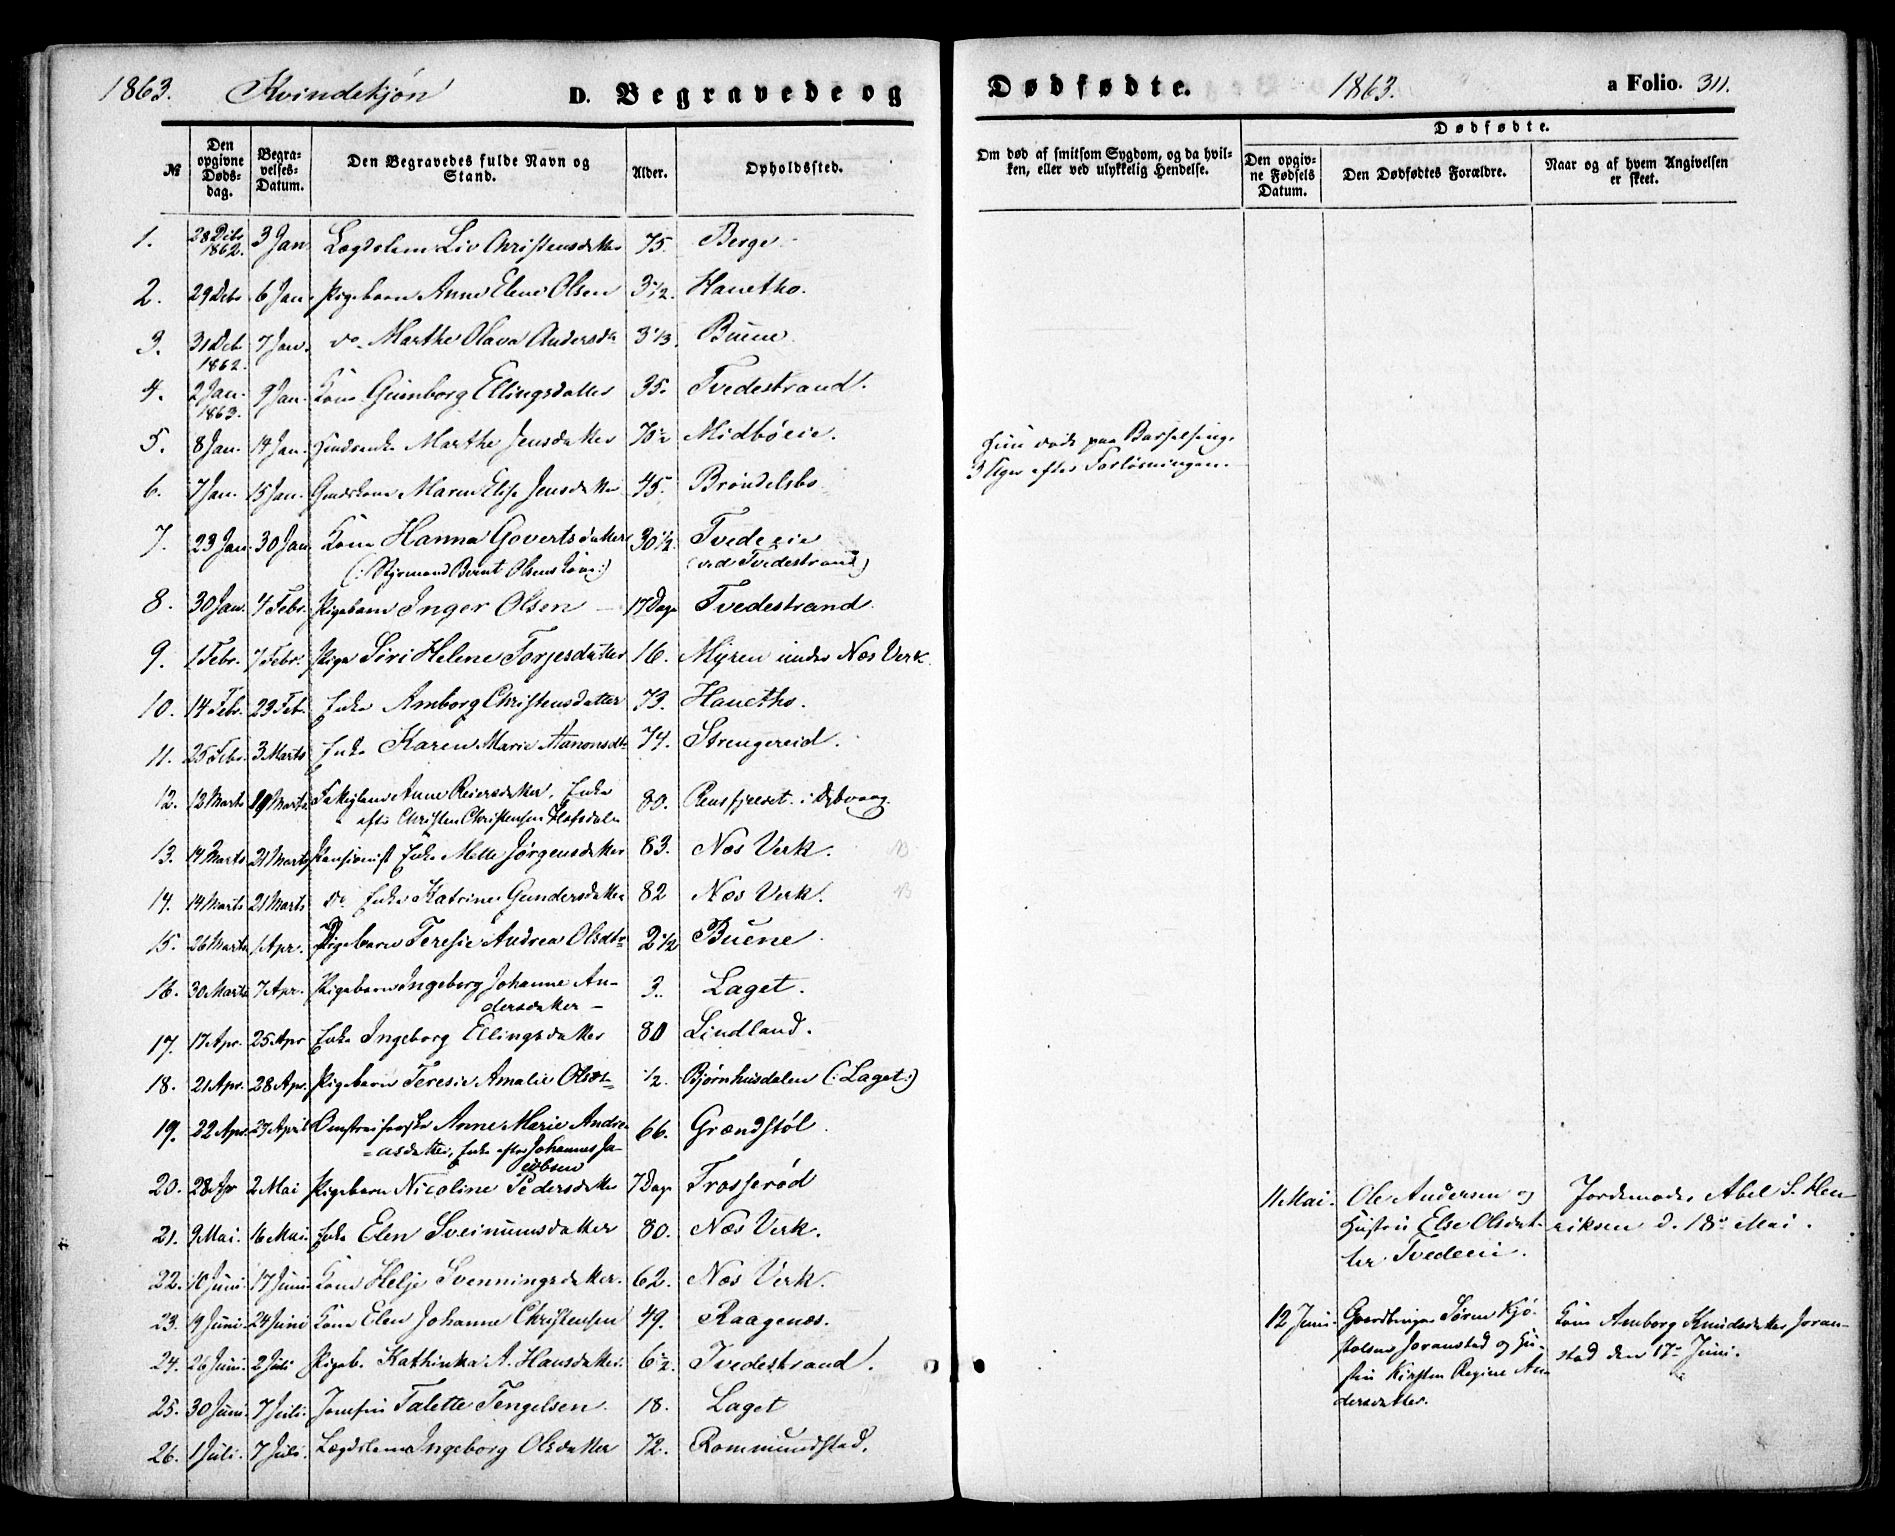 1863. Kvindekjøn D. Begravede og Dødfødte. 1863. a Folio. 311.
№ Den opgivne Døds-dag. Begra-velses-Datum. Den Begravedes fulde Navn og Stand. Alder. Opholdssted.
Om død af smitsom Sygdom, og da hvil-ken, eller ved ulykkelig Hendelse. Dødfødte. Den opgiv-ne Fødsels Datum. Den Dødfødtes Forældre. Naar og af hvem Angivelsen er skeet.
1. 28 Debr 1862. 3 Jan. Lægdslem Liv Christensdatter 75. Berge.
2. 29 Debr 6 Jan. Pigebarn Anne Elene Olsen 3 1/2. Hanetho.
3. 31 Deb 1862. 7 Jan. do. Marthe Olava Andersdr 3 1/3. Buene.
4. 2 Jan. 1863. 9 Jan. Kone Gunborg Ellingsdatter 35. Tvedestrand.
5. 8 Jan. 14 Jan. Marthe Jensdatter 70 1/2 Midbøeie.
6. 7 Jan. 15 Jan. Gmdskone Maren Elise Jensdatter 45. Brøndelsbo
Hun døde paa Barselseng.
3 Uger efter Forløsningen.
7. 23 Jan. 30 Jan. Kone Hanna Govertsdatter 30 1/2. Tvedeeie
(: Styrmand Bernt Olsens Kone :) (ved Tvedestrand)
8. 30 Jan. 4 Febr. Pigebarn Inger Olsen 17 Dage Tvedestrand.
9. 1 Febr. 7 Febr. Pige Siri Helene Torjesdatter 16. Myren under Næs Verk.
10. 14 Febr. 23 Feb. Enke Amborg Christensdatter 73. Hanetho.
11. 25 Febr. 3 Marts Enke Karen Marie Aanonsdtr 74. Strengereid.
12. 12 Marts 19 Marts Fattiglem Anne Reiersdatter, Enke 80. Rensfjeldet i Dybvaag.
efter Christen Christensen
13. 14 Marts 21 Marts Pensionist Enke Mette Jørgensdatter 83. Næs Verk. NB
14. 14 Marts 21 Marts do. Enke Katrine Gundersdatter 82 Næs Verk. NB
15. 26 Marts 1 Apr. Pigebarn Teresie Andrea Olsdtr 2 1/2 Buene
16. 30 Marts 7 Apr. Pigebarn Ingeborg Johanne An-
dersdatter 3. Laget.
17. 17 Apr. 25 Apr Enke Ingeborg Ellingsdatter 80 Lindland.
18. 21 Apr. 28 Apr. Pigebarn Teresie Amalie Olsdt 1/2. Bjørnhusdalen (: Laget :)
19. 22 Apr. 27 April Anne Marie Andre-
asdatter, Enke efter Johannes Ja-
cobsen 66. Grændstøl.
20. 28 Apr 2 Mai Pigebarn Nicoline Pedersdatter 7 Dage Trosserød
21. 9 Mai. 16 Mai. Enke Elen Sveinumsdatter 80. Næs Verk.
22. 10 Juni 17 Juni Kone Helje Svenningsdatter. 62. Næs Verk.
23. 19 Juni 24 Juni Kone Elen Johanne Christensen 49. Raagenæs.
24. 26 Juni. 2 Juli Pigeb. Kathinka A. Hansdatter. 6 1/2. Tvedestrand.
25. 30 Juni. 7 Juli. Jomfru Talette Tengelsen. 18. Laget
26. 1 Juli. 7 Juli. Lægdslem Ingeborg Olsdatter 72. Rommundstad.
11 Mai. Ole Andersen og Jordemoder Abel S. Hen-
Hustru Else Olsdat- riksen d. 18de Mai.
ter Tvedeeie.
12 Juni. Gaardbruger Søren Kjø- Kone Amborg Knudsdatter Joran-
stolsen Joranstad og Hu- stad den 17de Juni.
stru Kirsten Regine An-
dersdatter.